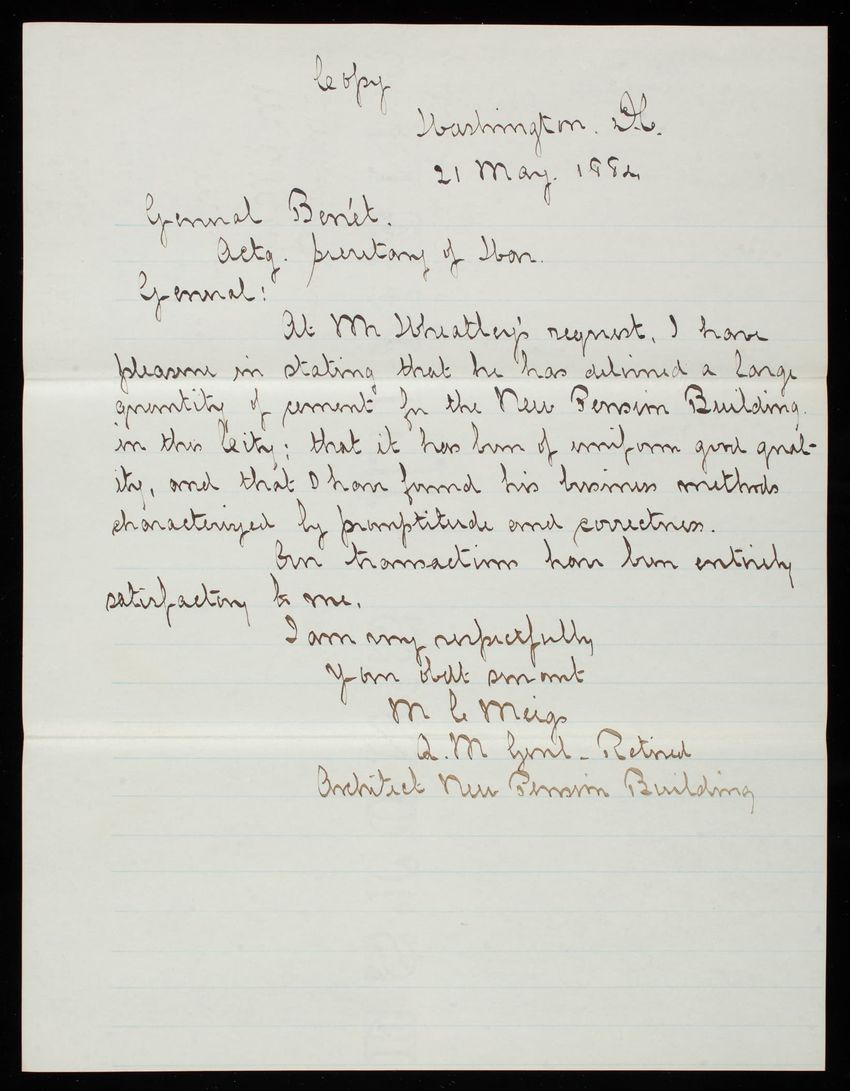 Copy
Washington. D.C.
21 May. 1884
General Benét.
Actg. Secretary of War.
General:
At Mr Wheatley's request, I have
pleasure in stating that he has delivered a large
quantity of cement for the New Pension Building.
in this City; that it has been of uniform good qual-
ity, and that I have found his business methods
characterized by promptitude and correctness.
Our transactions have been entirely
satisfactory to me.
I am very respectfully
Your obdt servant
M C Meigs
Q.M Genl - Retired
Architect New Pension Building